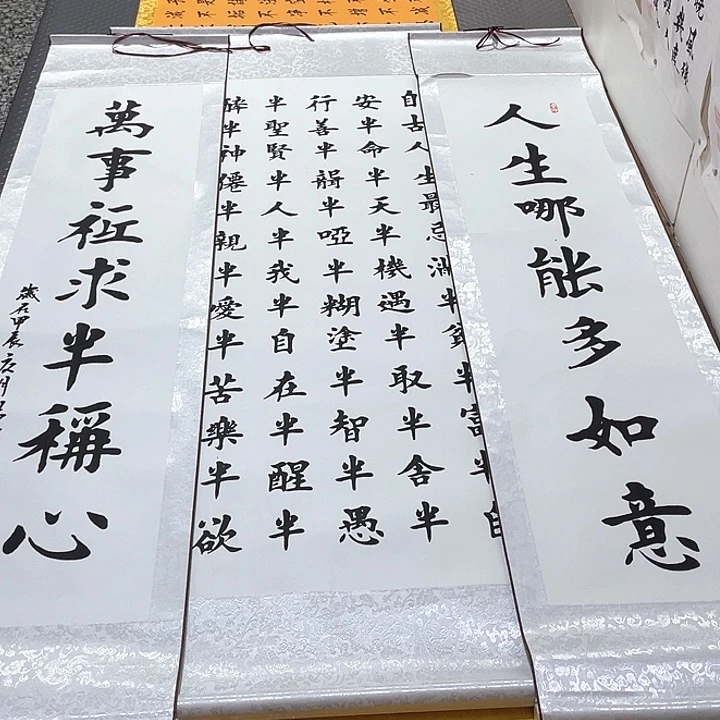 人生哪能多如意
自古人生最忌滿半貧半富半自
安半命半天半機遇半取半舍半
行善半聾半啞半糊塗半智半愚
半聖賢半人半我半自在半醒半
醉半神僊半親半愛半苦樂半欲
萬事祗求半稱心
歲在甲辰